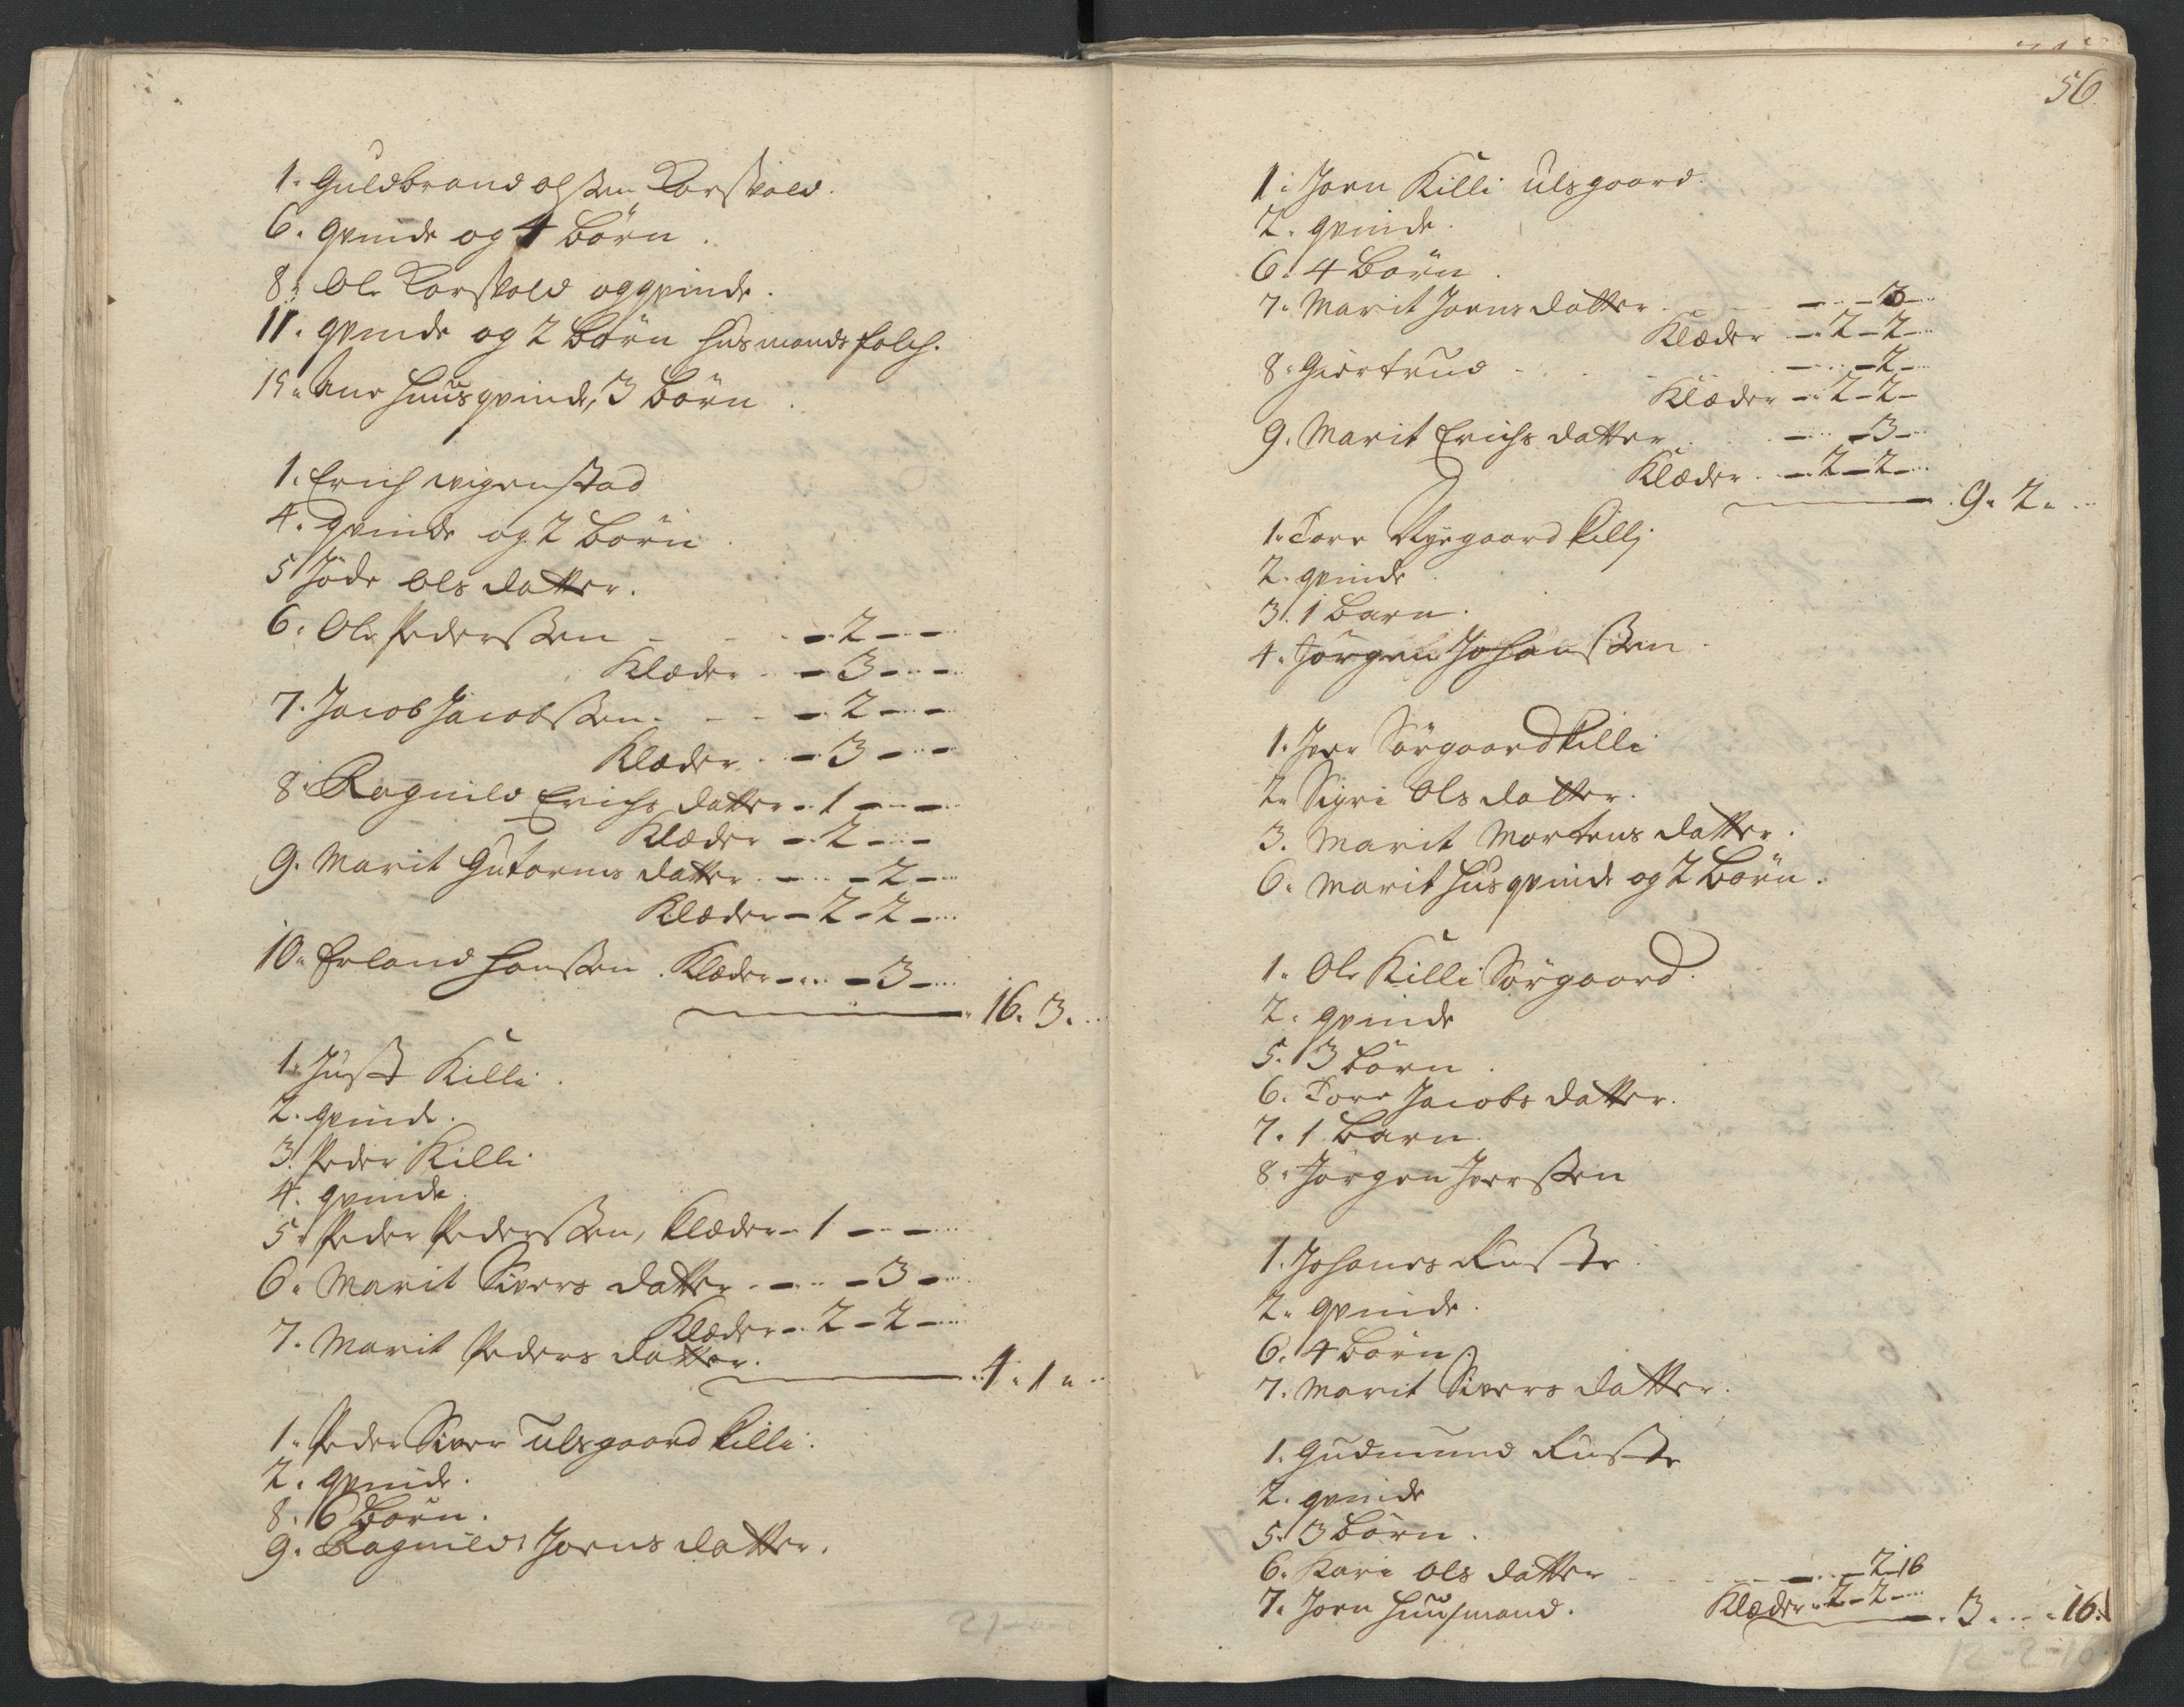 1. Guldbrand olssen Korsvold.
6. qvinde og 4 börn.
8. Ole Korsvold og qvinde.
11. qvinde og 2 börn husmands folch.
15. Ane huusqvinde, 3 börn.
1. Erich wigenstad
4. qvinde og 2 börn.
5 Jöde Ols datter.
6. Ole Pederssen - - - 2 - -
Klæder - 3 - -
7. Jacob Jacobssen. - - - 2 - -
Klæder - 3 - -
8. Ragnild Erichs datter - 1 - -
Klæder - 2 - -
9. Marit Gutorms datter - - 2 -
Klæder - 2 - 2 -
10. Erland hanssen. Klæder - - 3 -
16. 3. -
1. Just Killi.
2. qvinde.
3. Peder Killi
4. qvinde.
5. Peder Pederssen, klæder - 1 - -
6. Marit Sivers datter - - 3 -
Klæder - 2 - 2 -
7. Marit Peders datter.
4. 1. -
1. Peder Siver ulsgaard killi.
2. qvinde.
8. 6 börn.
9. Ragnild Joens datter.
21 - -
56.
1. Joen Killi ulsgaard.
2. qvinde.
6. 4 börn.
7. Marit Joens datter - - 3 -
Klæder - 2 - 2 -
8. Giertrud - - 2 -
Klæder - 2 - 2 -
9. Marit Erichs datter - - 3 -
Klæder - 2 - 2 -
9. 2. -
1. Tore Nyegaard killj
2. qvinde.
3. 1 barn.
4. Jörgen Johanssen.
1. Iver Sörgaard killi
2. Sigri Ols datter.
3. Marit Mortens datter.
6. Marit husqvinde og 2 börn.
1. Ole Killi Sörgaard.
2. qvinde
5. 3 börn.
6. Tore Jacobs datter.
7. 1 barn.
8. Jörgen Iverssen
1. Johanes Ruste.
2. qvinde.
6. 4 börn
7. Marit Sivers datter.
1. Gudmund Ruste
2. qvinde
5. 3 börn.
6. Kari Ols datter - - 2 - 16
7. Joen huusmand. Klæder - 2 - 2 -
3. - 16.
12 - 2 - 16